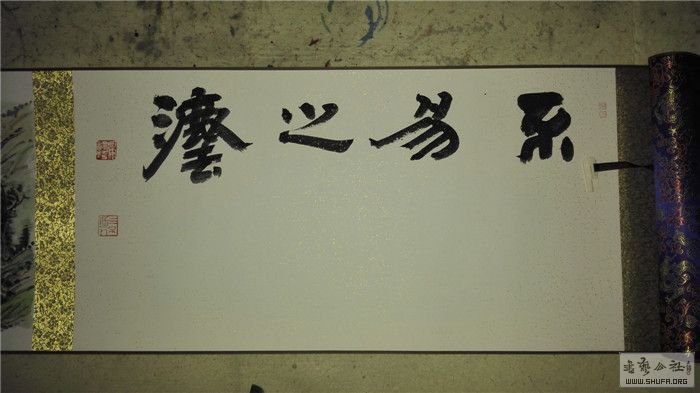 不易之灋
书艺公社
WWW.SHUFA.ORG